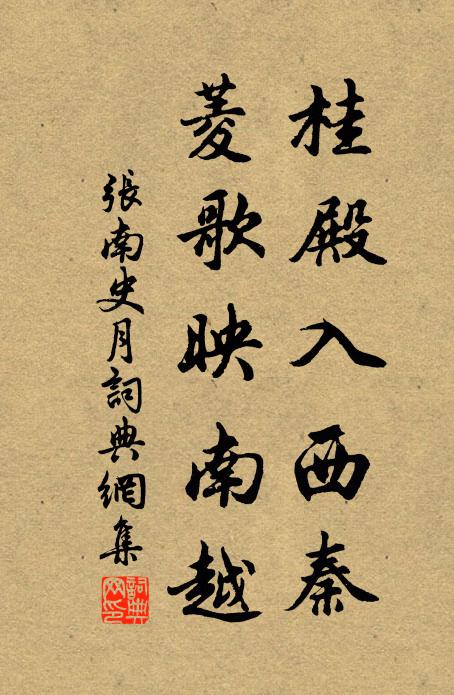 桂殿入西秦
菱歌映南越
張南史月詞典網集
詞典網印